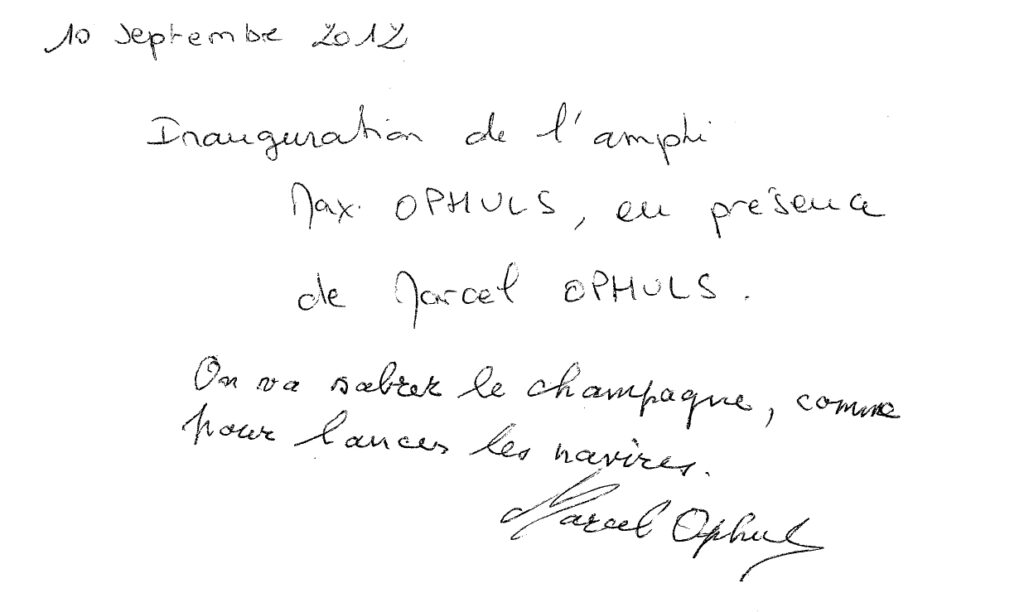 10 septembre 2012
Inauguration de l'amphi
Max OPHULS, en présence
de Marcel OPHULS.
On va sabrer le champagne, comme
pour lancer les navires.
Marcel Ophuls